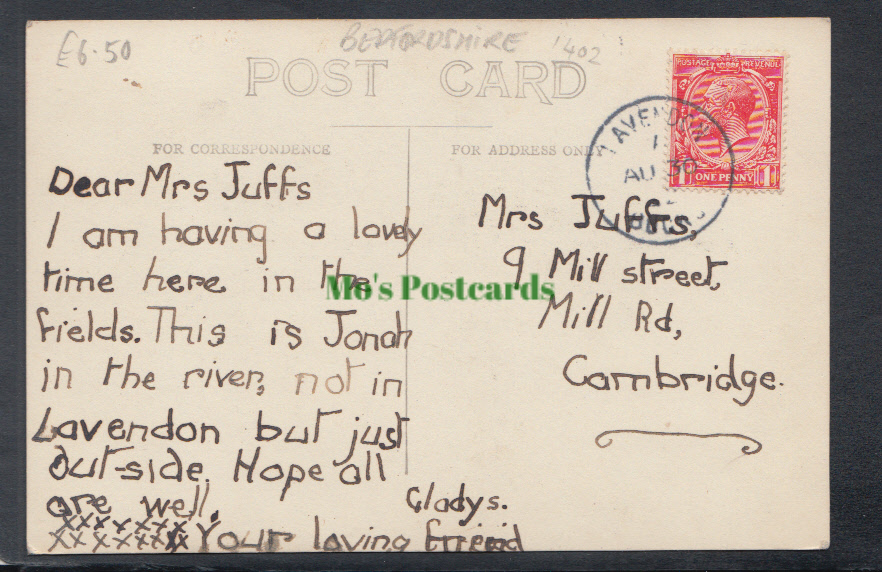 £6.50
BEDFORDSHIRE
1402
POST CARD
FOR CORRESPONDENCE
FOR ADDRESS ONLY
POSTAGE REVENUE
ONE PENNY
1 1
LAVENDON
AU 30
Dear Mrs Juffs
I am having a lovely
time here in the
fields. This is Jonah
in the river, not in
Lavendon but just
out-side. Hope all
are well.
Gladys.
xxxxxxx
xxxxxxx Your loving friend
Mrs Juffs,
9 Mill street,
Mill Rd,
Cambridge.
Mo's Postcards